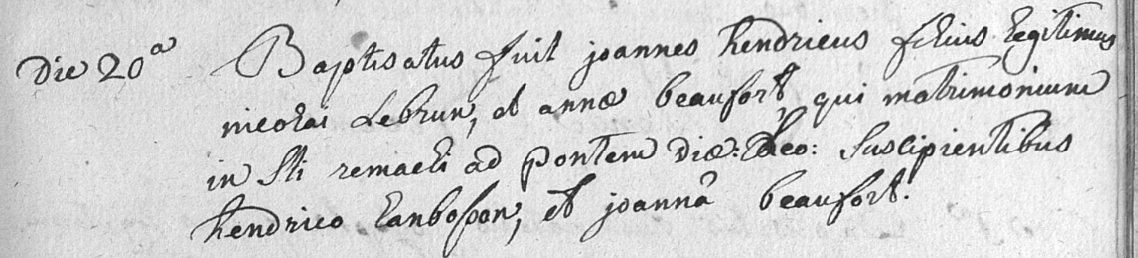 Die 20a Baptisatus fuit joannes hendricus filius legitimus
nicolai Lebrun, et annæ beaufort, qui matrimonium
in Sti remacli ad pontem diæ: Leo: Suscipientibus
hendrico Lambosson, et joannâ beaufort.